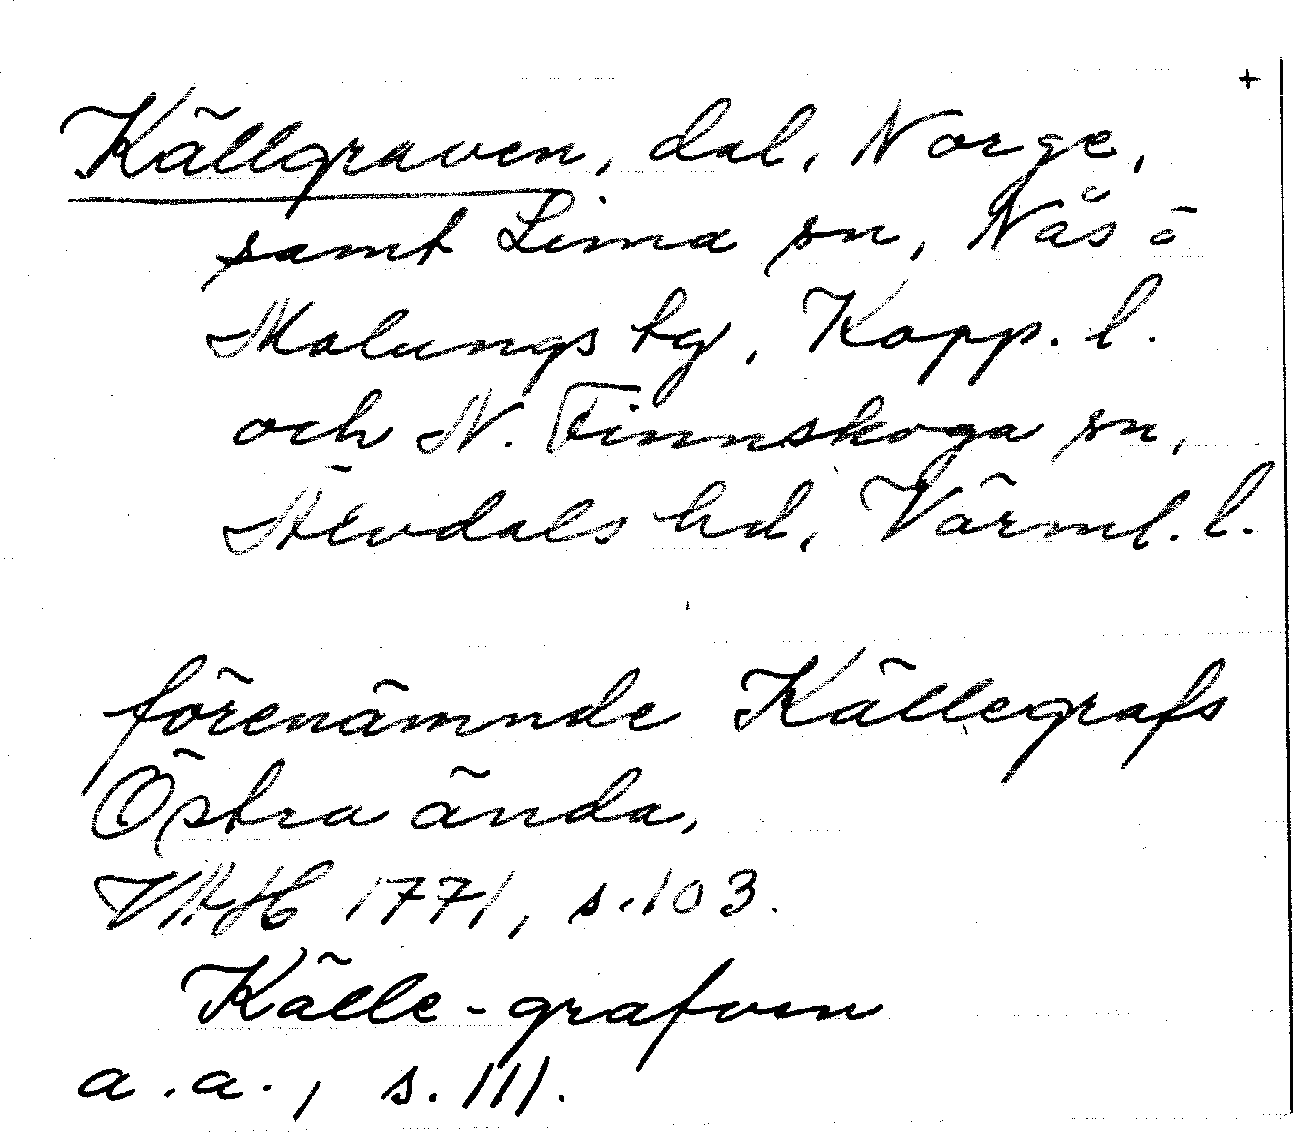 +
Källgraven, dal, Norge,
samt Lima sn, Nås o
Malungs tg, Kopp. l.
och N. Finnskoga sn,
Älvdals hd, Värml. l.
förenämnde Källegrafs
Östra ända,
VAH 1771, s. 103.
Källe-grafven
a.a., s. 111.